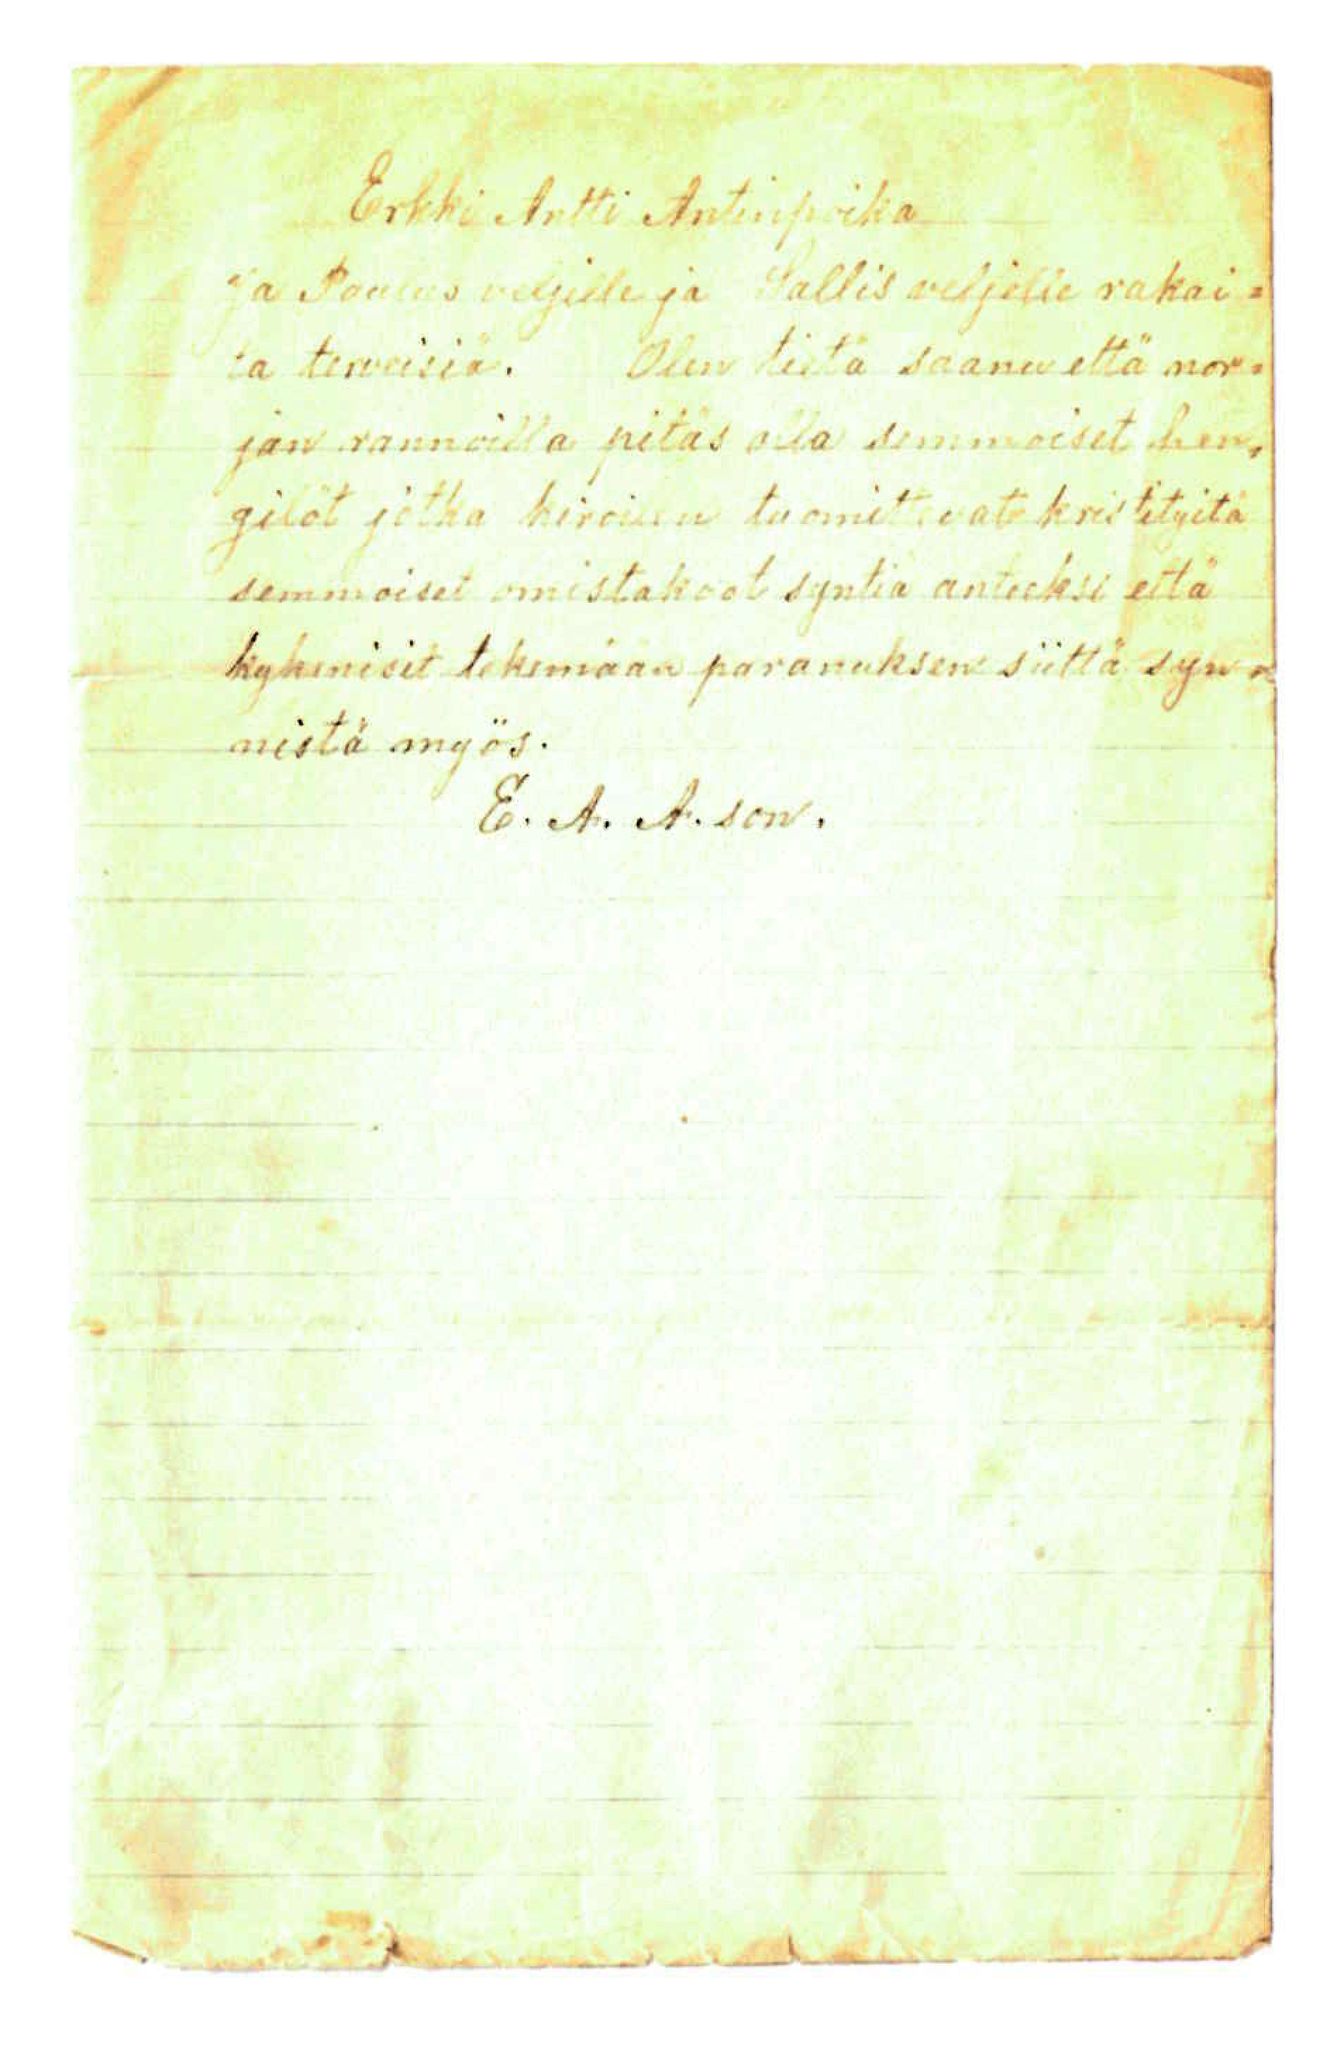 Erkki Antti Antinpoika
ja Paulus veljelle ja Sallis veljelle rakai=
ta terveisiä. Olen tietä saanu että nor=
jan rannoilla pitäs olla semmoiset hen=
gilöt jotka kiroilen tuomittevat kristityitä
semmoiset omistakoot syntiä anteeksi että
kykenisit tekemään paranuksen siittä syn=
nistä myös.
E. A. A. son.